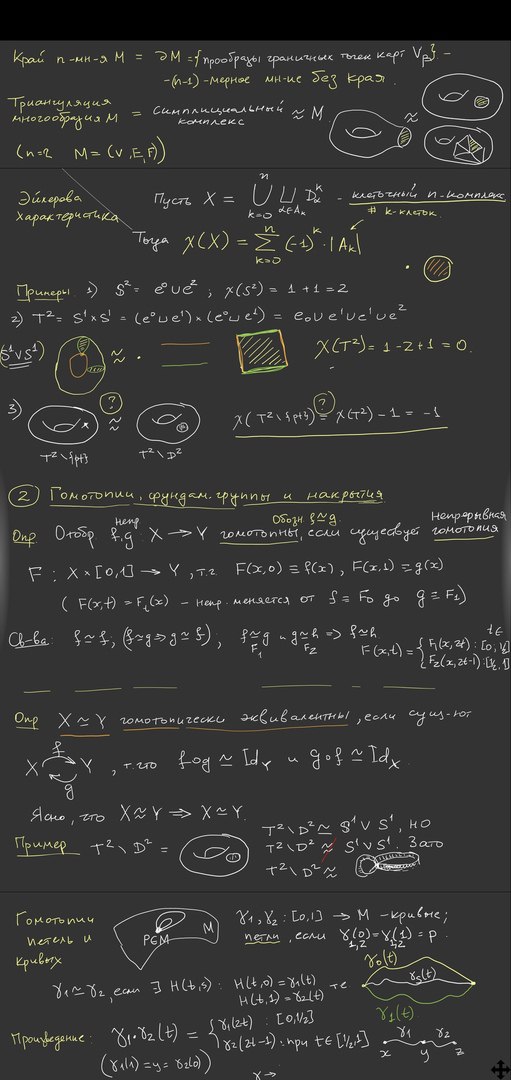 Край n-мн-я M = ∂M = {прообразы граничных точек карт V_β} -
- (n-1)-мерное мн-ие без края.
Триангуляция многообразия M = симплициальный комплекс ≈ M
≈
(n=2 M = (V, E, F))
Эйлерова характеристика
Пусть X = ⋃_{k=0}^{n} ⨆_{α∈A_k} D_α^k - клеточный n-комплекс
# k-клеток.
Тогда χ(X) = ∑_{k=0}^{n} (-1)^k · |A_k|
Примеры. 1) S² = e⁰∪e², χ(S²) = 1+1 = 2
2) T² = S¹×S¹ = (e⁰⊔e¹)×(e⁰⊔e¹) = e₀∪e¹∪e¹∪e²
(S¹∨S¹) ≈ χ(T²) = 1-2+1 = 0.
3) ? ≈ χ(T²\{pt}) =? χ(T²) - 1 = -1
T²\{pt} T²\D²
2 Гомотопии, фундам. группы и накрытия
Опр Отобр непр. f, g: X → Y гомотопны, если существует Непрерывная гомотопия
Обозн. f≃g.
F: X×[0,1] → Y, т.ч. F(x,0) ≡ f(x), F(x,1) ≡ g(x)
(F(x,t) = F_t(x) - непр. меняется от f ≡ F₀ до g ≡ F₁)
Св-ва: f≃f, (f≃g ⇒ g≃f), f≃g и g≃h ⇒ f≃h.
F₁ F₂ F(x,t) = { F₁(x,2t) : [0,½] t∈
F₂(x,2t-1) : [½,1]
Опр X≃Y гомотопически эквивалентны, если сущ-ют
X f Y g, т.что f∘g ≃ Id_Y и g∘f ≃ Id_X.
Ясно, что X≈Y ⇒ X≃Y.
Пример T²\D² = T²\D² ≃ S¹∨S¹, но
T²\D² ≉ S¹∨S¹. Зато
T²\D² ≈
Гомотопии петель и кривых
P∈M M
γ₁, γ₂ : [0,1] → M - кривые;
петли, если γ₁,₂(0) = γ₁,₂(1) = p.
γ₁≃γ₂, если ∃ H(t,s): H(t,0) = γ₁(t)
H(t,1) = γ₂(t)
γ₀(t)
γ_s(t)
γ₁(t)
Произведение: γ₁·γ₂(t) = { γ₁(2t) : [0,1/2]
γ₂(2t-1) : при t∈[½,1]
(γ₁(1) = y = γ₂(0))
γ₁ γ₂
x y z